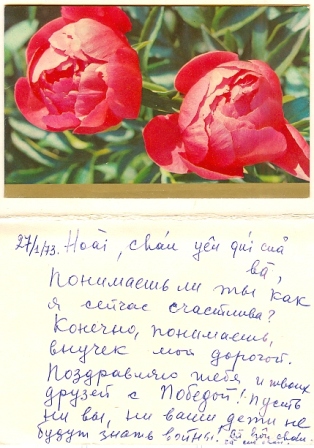 27/1/73. Hoài, cháu yêu quí của
bà,
Понимаешь ли ты как
я сейчас счастлива?
Конечно, понимаешь,
внучек мой дорогой.
Поздравляю тебя и твоих
друзей с Победой! Пусть
ни вы, ни ваши дети не
будут знать войны!